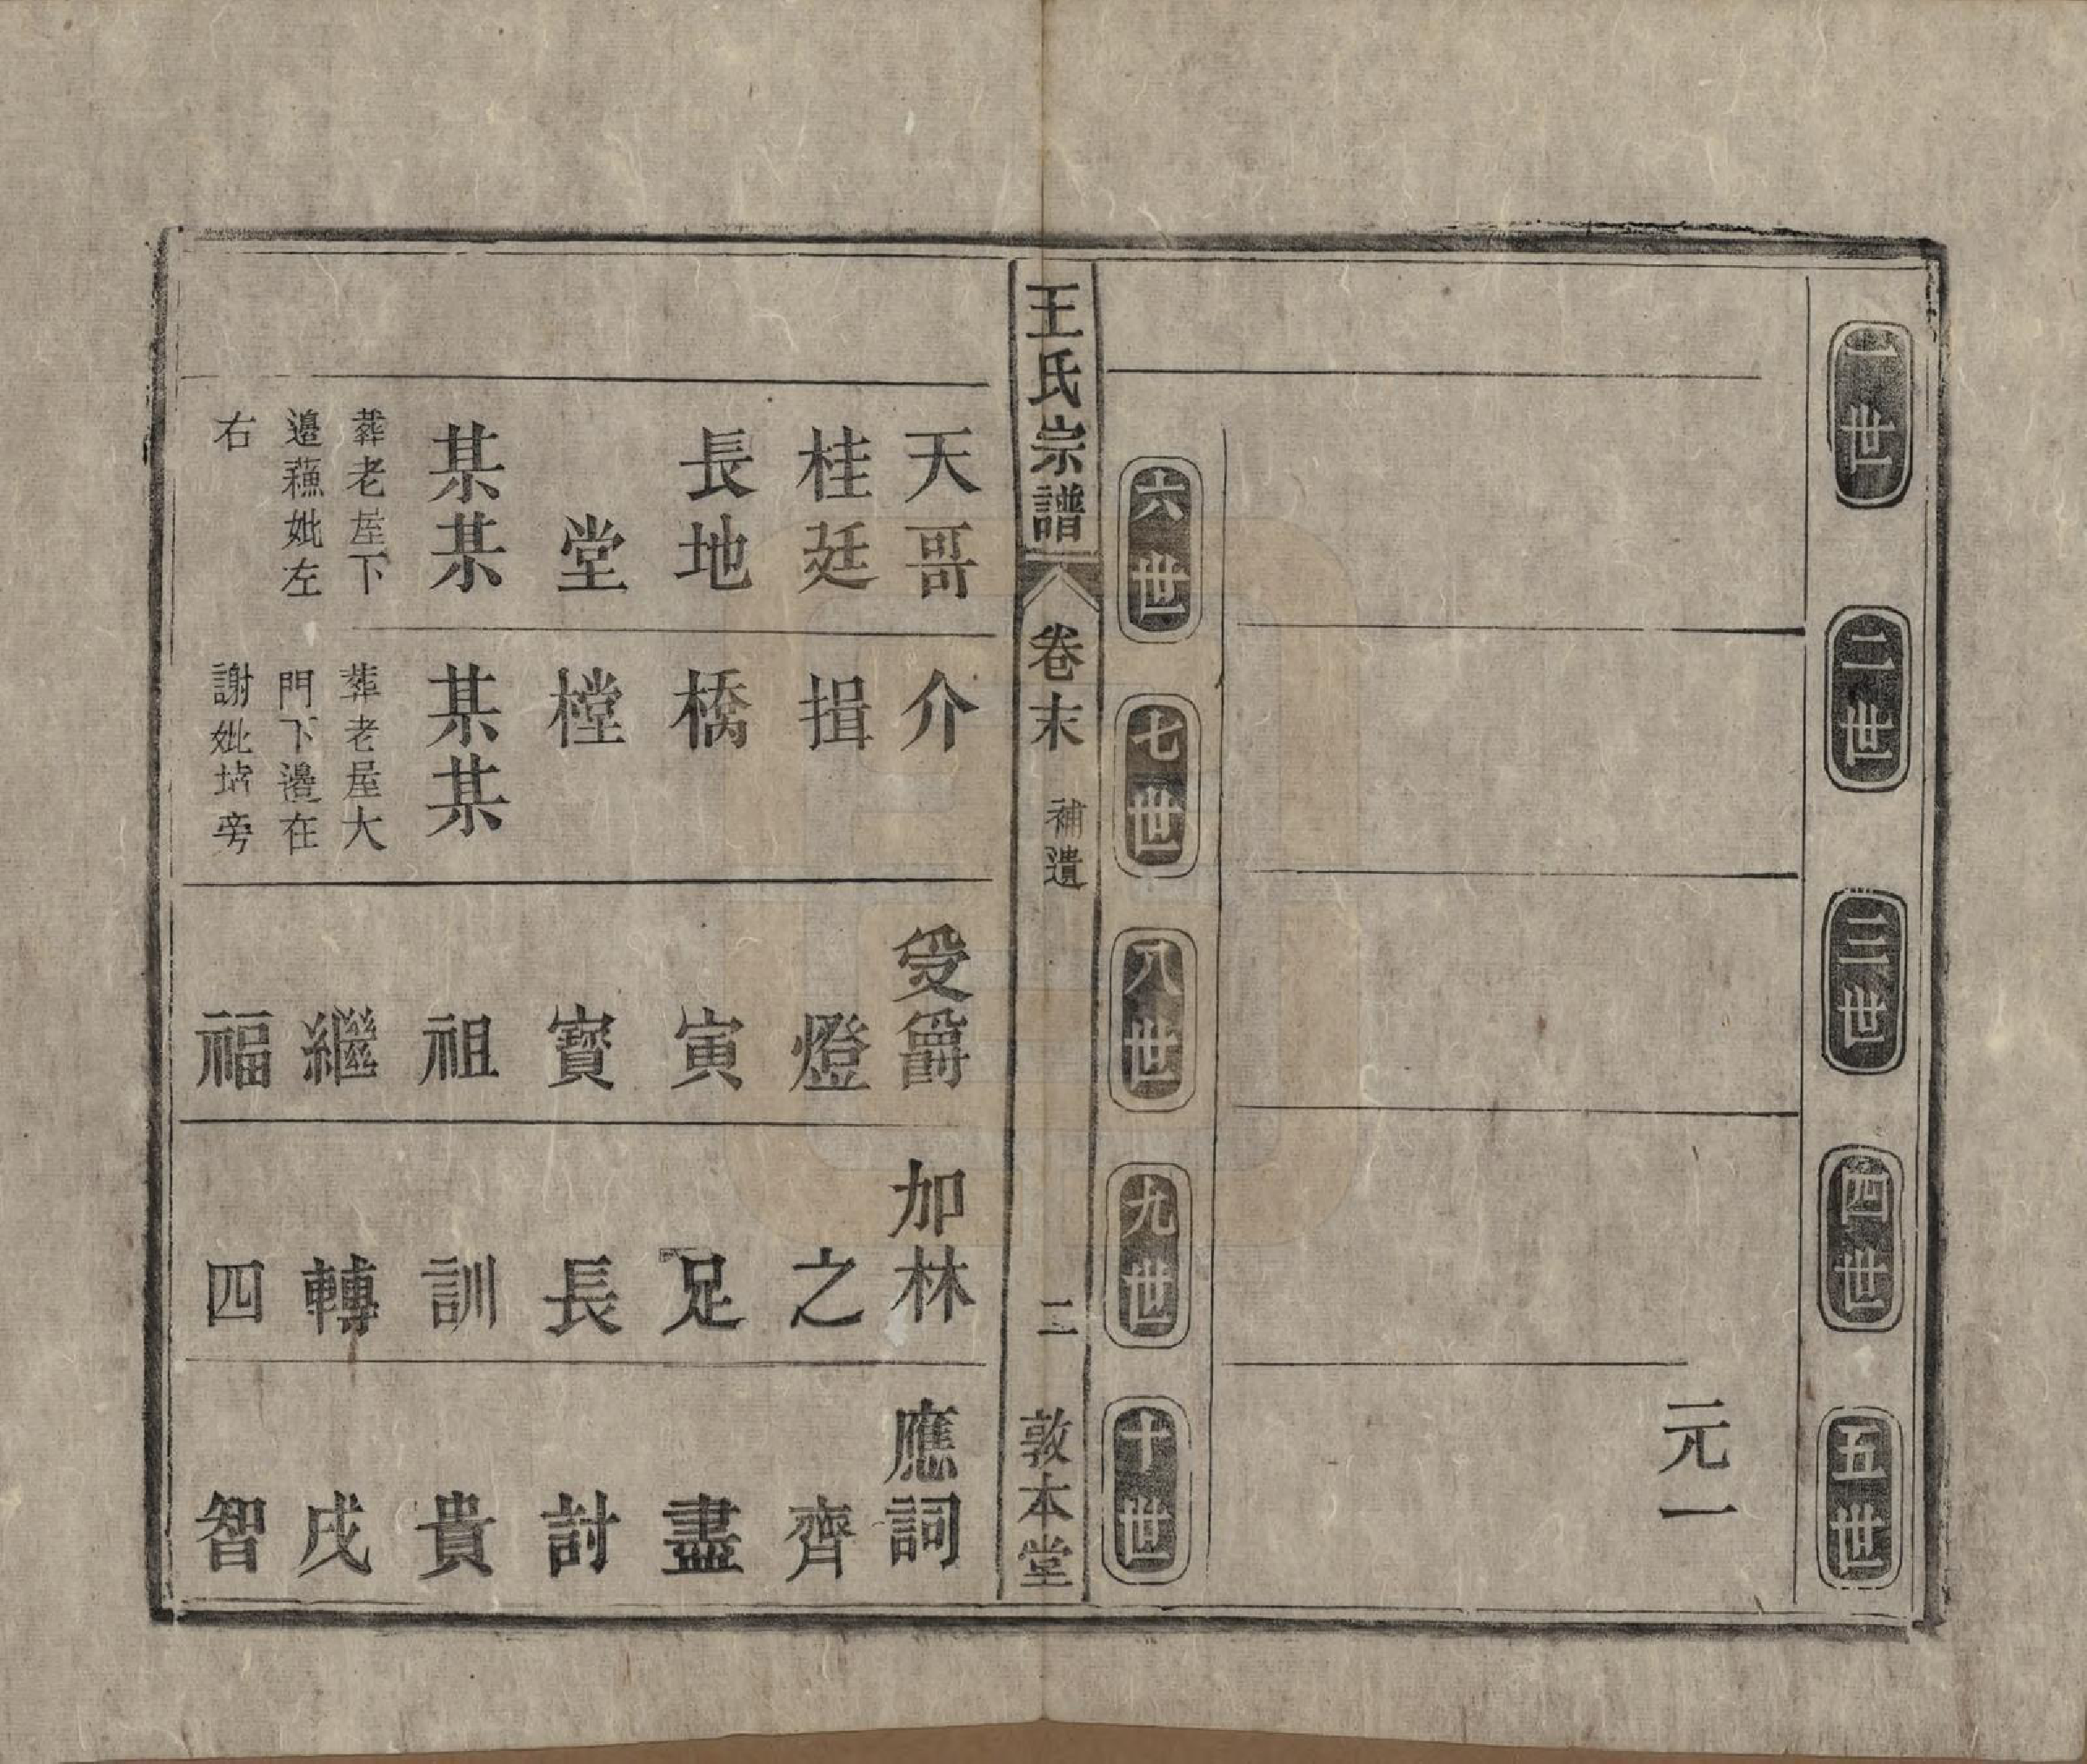 一世
二世
三世
四世
五世
元一
六世
七世
八世
九世
十世
王氏宗譜
卷末
補遺
二
敦本堂
天哥
介
受爵
加林
應詞
桂廷
揖
燈
之
齊
長地
橋
寅
足
盡
堂
樘
寳
長
討
某某
某某
祖
訓
貴
葬老屋下
邉蘓妣左
右
葬老屋大
門下邉在
謝妣坟旁
繼
轉
戌
福
四
智